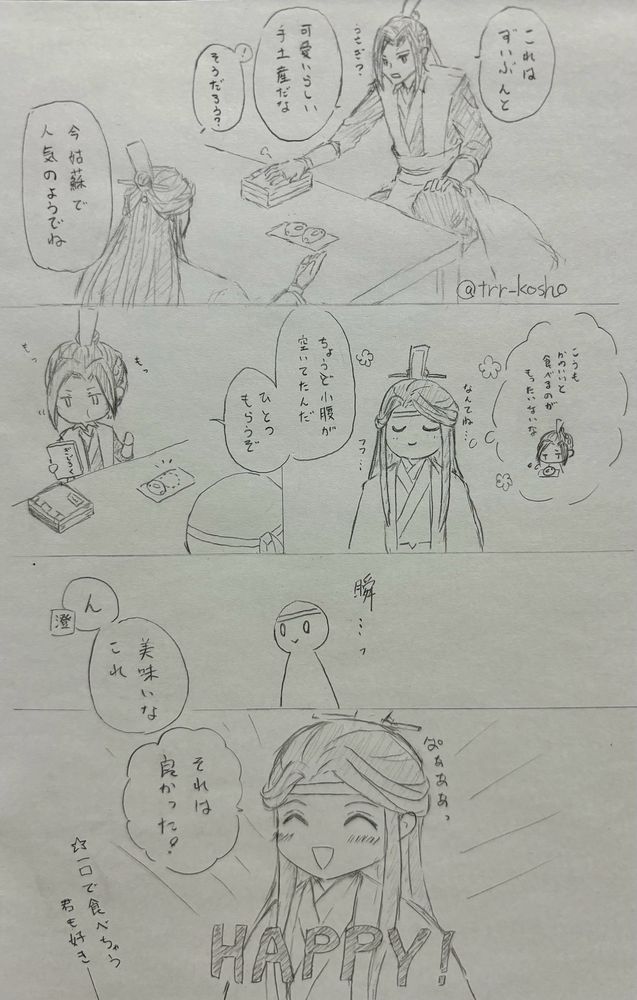 これは
ずいぶんと
可愛いらしい
手土産だな
うさぎ?
そうだろう?
今姑蘇で
人気のようでね
@trr-kosho
こうも
かわいいと
食べるのが
もったいないな
なんてね…
フフ…
ちょうど小腹が
空いてたんだ
ひとつ
もらうぞ
もっ
もっ
瞬…っ
ん
澄
美味いな
これ
ぱぁぁぁっ
それは
良かった!
☆一口で食べちゃう
君も好き
HAPPY!